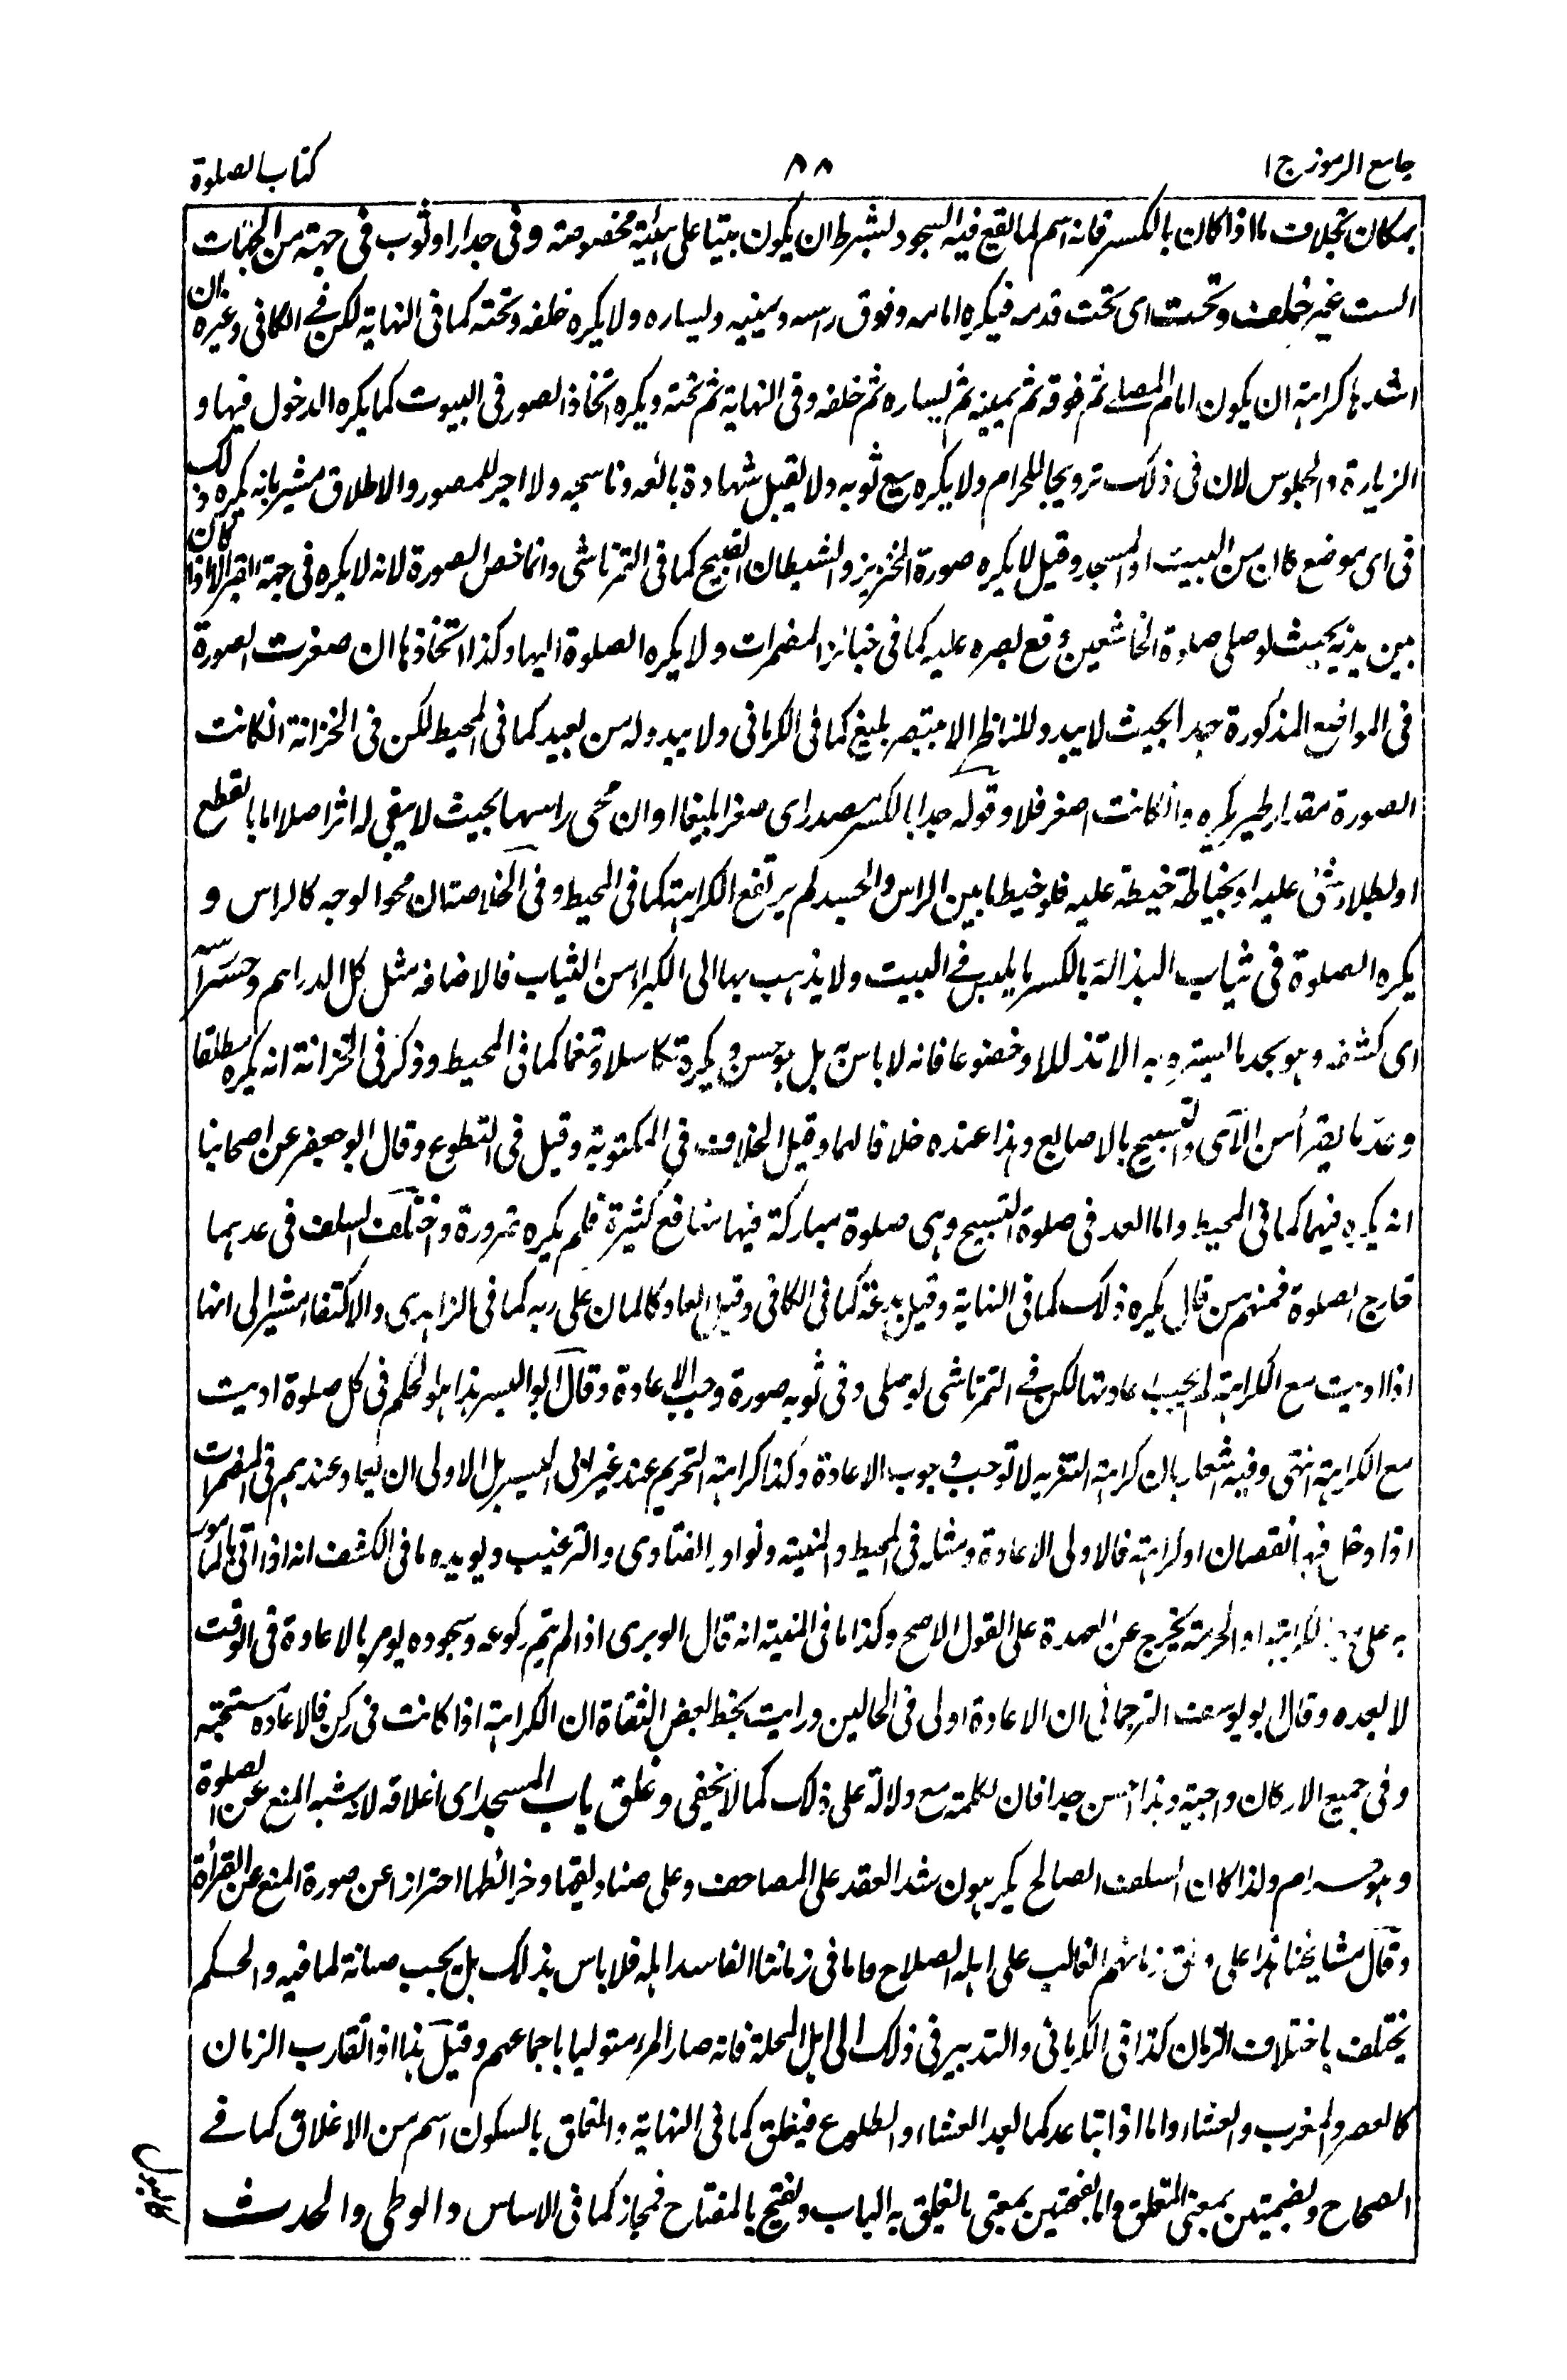 جامع الرموز ج ١
٨٨
كتاب الصلوة
بمكان بخلاف ما اذا كان بالكسر فانه اسم لما يقع فيه السجود بشرط ان يكون بيتا على هيئة مخصوصة و في جدار او ثوب في جهة من الجهات
الست غير خلف وتحت اى تحت قدمه فيكره امامه وفوق راسه ويمينه ويساره ولا يكره خلفه وتحته كما في النهاية لكن في الكافي وغيره ان
اشدها كراهة ان يكون امام المصلى ثم فوقه ثم يمينه ثم يساره ثم خلفه وفي النهاية ثم تحته ويكره اتخاذ الصور في البيوت كما يكره الدخول فيها و
الزيارة والجلوس لان في ذلك ترويجا للحرام ولا يكره بيع ثوبه ولا يقبل شهادة بائعه وناسجه ولا اجر للمصور والاطلاق مشير بانه يكره ذلك
في اى موضع كان من البيت او المسجد وقيل لا يكره صورة الخنزير والشيطان القبيح كما في التمرتاشى وانما خص الصورة لانه لا يكره في جهة القبر الا اذا كان
بين يديه بحيث لو صلى صلوة الخاشعين وقع بصره عليه كما في جنائز المضمرات ولا يكره الصلوة اليها وكذا اتخاذها ان صغرت الصورة
في المواضع المذكورة جدا بحيث لا يبدو للناظر الا بتبصر بليغ كما في الكرمانى ولا يبدو له من بعيد كما في المحيط لكن في الخزانة ان كانت
الصورة مقدار طير يكره وان كانت اصغر فلا وقوله جدا بالكسر مصدر اى صغرا بليغا او ان محى راسها بحيث لا يبقى له اثر اصلا اما بالقطع
او بطلاء شئ عليه او بخياطة خيطة عليه فلو خيط ما بين الراس والجسد لم يرتفع الكراهة كما في المحيط و في الخلاصة ان محو الوجه كالراس و
يكره الصلوة في ثياب البذالة بالكسر ما يلبس في البيت ولا يذهب بها الى الكبراء من الثياب فالاضافة مثل كل الدراهم و حسر راسه
اى كشفه وهو يجد ما يستره به الا تذللا و خضوعا فانه لا باس به بل هو حسن و يكره تكاسلا و تنعما كما في المحيط وذكر في الخزانة انه يكره مطلقا
وعد ما يقرأ من الآى والتسبيح بالاصابع وهذا عنده خلافا لهما وقيل الخلاف في المكتوبة وقيل في التطوع وقال ابو جعفر عن اصحابنا
انه يكره فيهما كما في المحيط واما العد في صلوة التسبيح وهى صلوة مباركة فيها منافع كثيرة فلم يكره ضرورة واختلف السلف في عدهما
خارج الصلوة فمنهم من قال يكره ذلك كما في النهاية وقيل بدعة كما في الكافي وقيل العاد كالمان على ربه كما في الزاهدى والاكتفاء مشير الى انها
اذا اديت مع الكراهة لم يجب اعادتها لكن في التمرتاشى لو صلى وفي ثوبه صورة وجب الاعادة وقال ابو اليسر هذا هو الحكم في كل صلوة اديت
مع الكراهة انتهى وفيه اشعار بان كراهة التنزيه لا توجب وجوب الاعادة وكذا كراهة التحريم عند غير ابى اليسر بل الاولى ان يعاد عندهم في المضمرات
اذا دخل فيها نقصان او كراهة فالاولى الاعادة ومثله في المحيط والمنية ونوادر الفتاوى والترغيب ويويده ما في الكشف انه اذا اتى بالمامور
به على وجه الكراهة او الحرمة يخرج عن العهدة على القول الاصح وكذا ما في المنية انه قال الوبرى اذا لم يتم ركوعه وسجوده يومر بالاعادة في الوقت
لا بعده وقال ابو يوسف الترجمانى ان الاعادة اولى في الحالين ورايت بخط بعض الثقاة ان الكراهة اذا كانت في ركن فالاعادة مستحبة
و في جميع الاركان واجبة وهذا احسن جدا فان لكلمة مع دلالة على ذلك كما لا يخفى و غلق باب المسجد اى اغلاقه لانه يشبه المنع عن الصلوة
وهو حرام ولذا كان السلف الصالح يكرهون شد العقد على المصاحف وعلى صناديقها وخرائطها احترازا عن صورة المنع عن القرأة
وقال مشايخنا هذا على وفق زمانهم الغالب على اهله الصلاح واما في زماننا الفاسد اهله فلا باس بذلك بل يجب صيانة لما فيه والحكم
يختلف باختلاف الزمان كذا في الكرمانى والتدبير في ذلك الى اهل المحلة فانه صار المرء متوليا باجماعهم وقيل هذا اذا تقارب الزمان
كالعصر والمغرب والعشاء واما اذا تباعد كما بعد العشاء والطلوع فيغلق كما في النهاية والغلق بالسكون اسم من الاغلاق كما في
الصحاح وبضمتين بمعنى المغلق واما بفتحتين بمعنى ما يغلق به الباب ويفتح بالمفتاح فمجاز كما في الاساس والوطى والحدث
كالبول